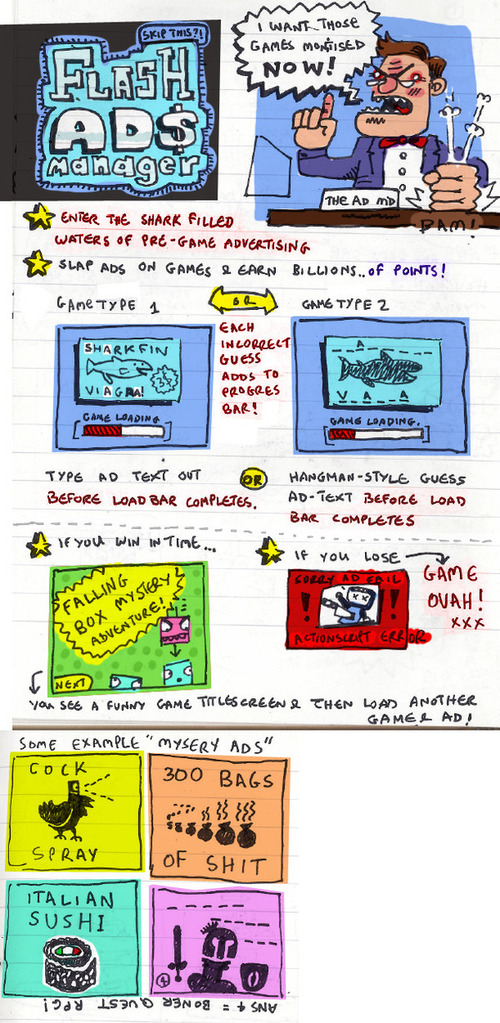 SKIP THIS?!
FLASH
AD$
manager
I WANT THOSE
GAMES MONTISED
NOW!
THE AD MD
BAM!
ENTER THE SHARK FILLED
WATERS OF PRE-GAME ADVERTISING
SLAP ADS ON GAMES & EARN BILLIONS.. OF POINTS!
GAMETYPE 1
OR
GAMETYPE 2
SHARKFIN
VIAGRA!
GAME LOADING
EACH
INCORRECT
GUESS
ADDS TO
PROGRES
BAR!
A
V _ A _ _ A
GAME LOADING.
TYPE AD TEXT OUT
BEFORE LOADBAR COMPLETES.
OR
HANGMAN-STYLE GUESS
AD-TEXT BEFORE LOAD
BAR COMPLETES
IF YOU WIN IN TIME...
FALLING
BOX MYSTERY
ADVENTURE!
NEXT
IF YOU LOSE
SORRY AD FAIL
! !
ACTIONSCRIPT ERROR
GAME
OVAH!
xxx
YOU SEE A FUNNY GAME TITLESCREEN & THEN LOAD ANOTHER
GAME & AD!
SOME EXAMPLE "MYSERY ADS"
COCK
SPRAY
300 BAGS
OF SHIT
ITALIAN
SUSHI
4
ANS 4 = BONER QUEST RPG!